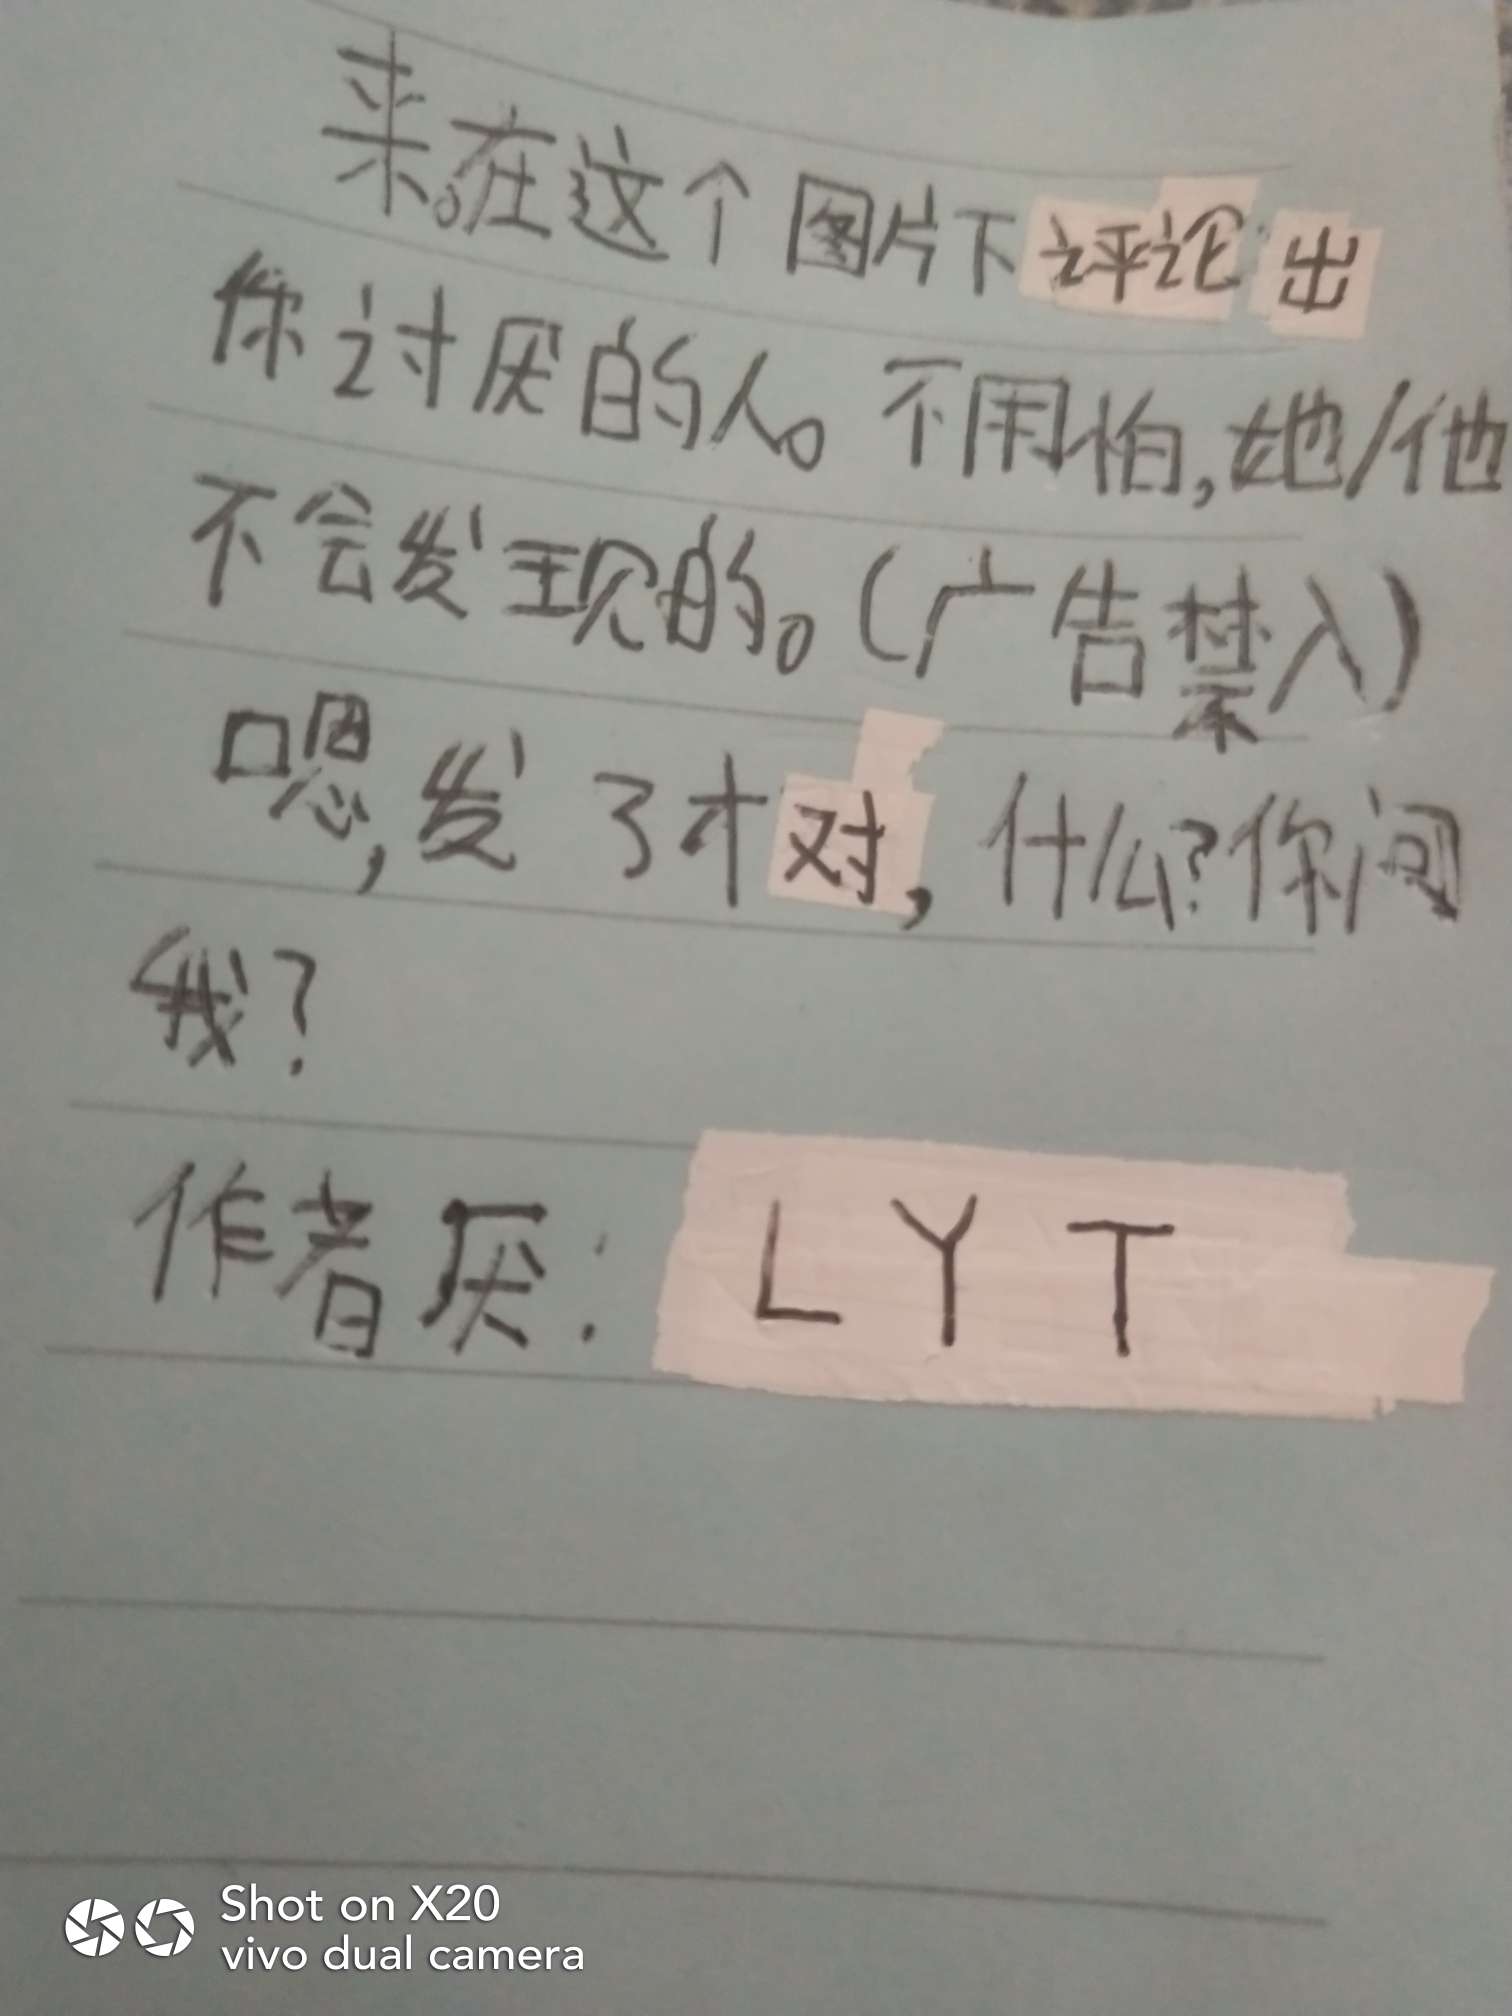 来。在这个图片下评论出
你讨厌的人。不用怕,她/他
不会发现的。(广告禁入)
嗯,发了才对,什么?你问
我?
作者厌: LYT
Shot on X20
vivo dual camera